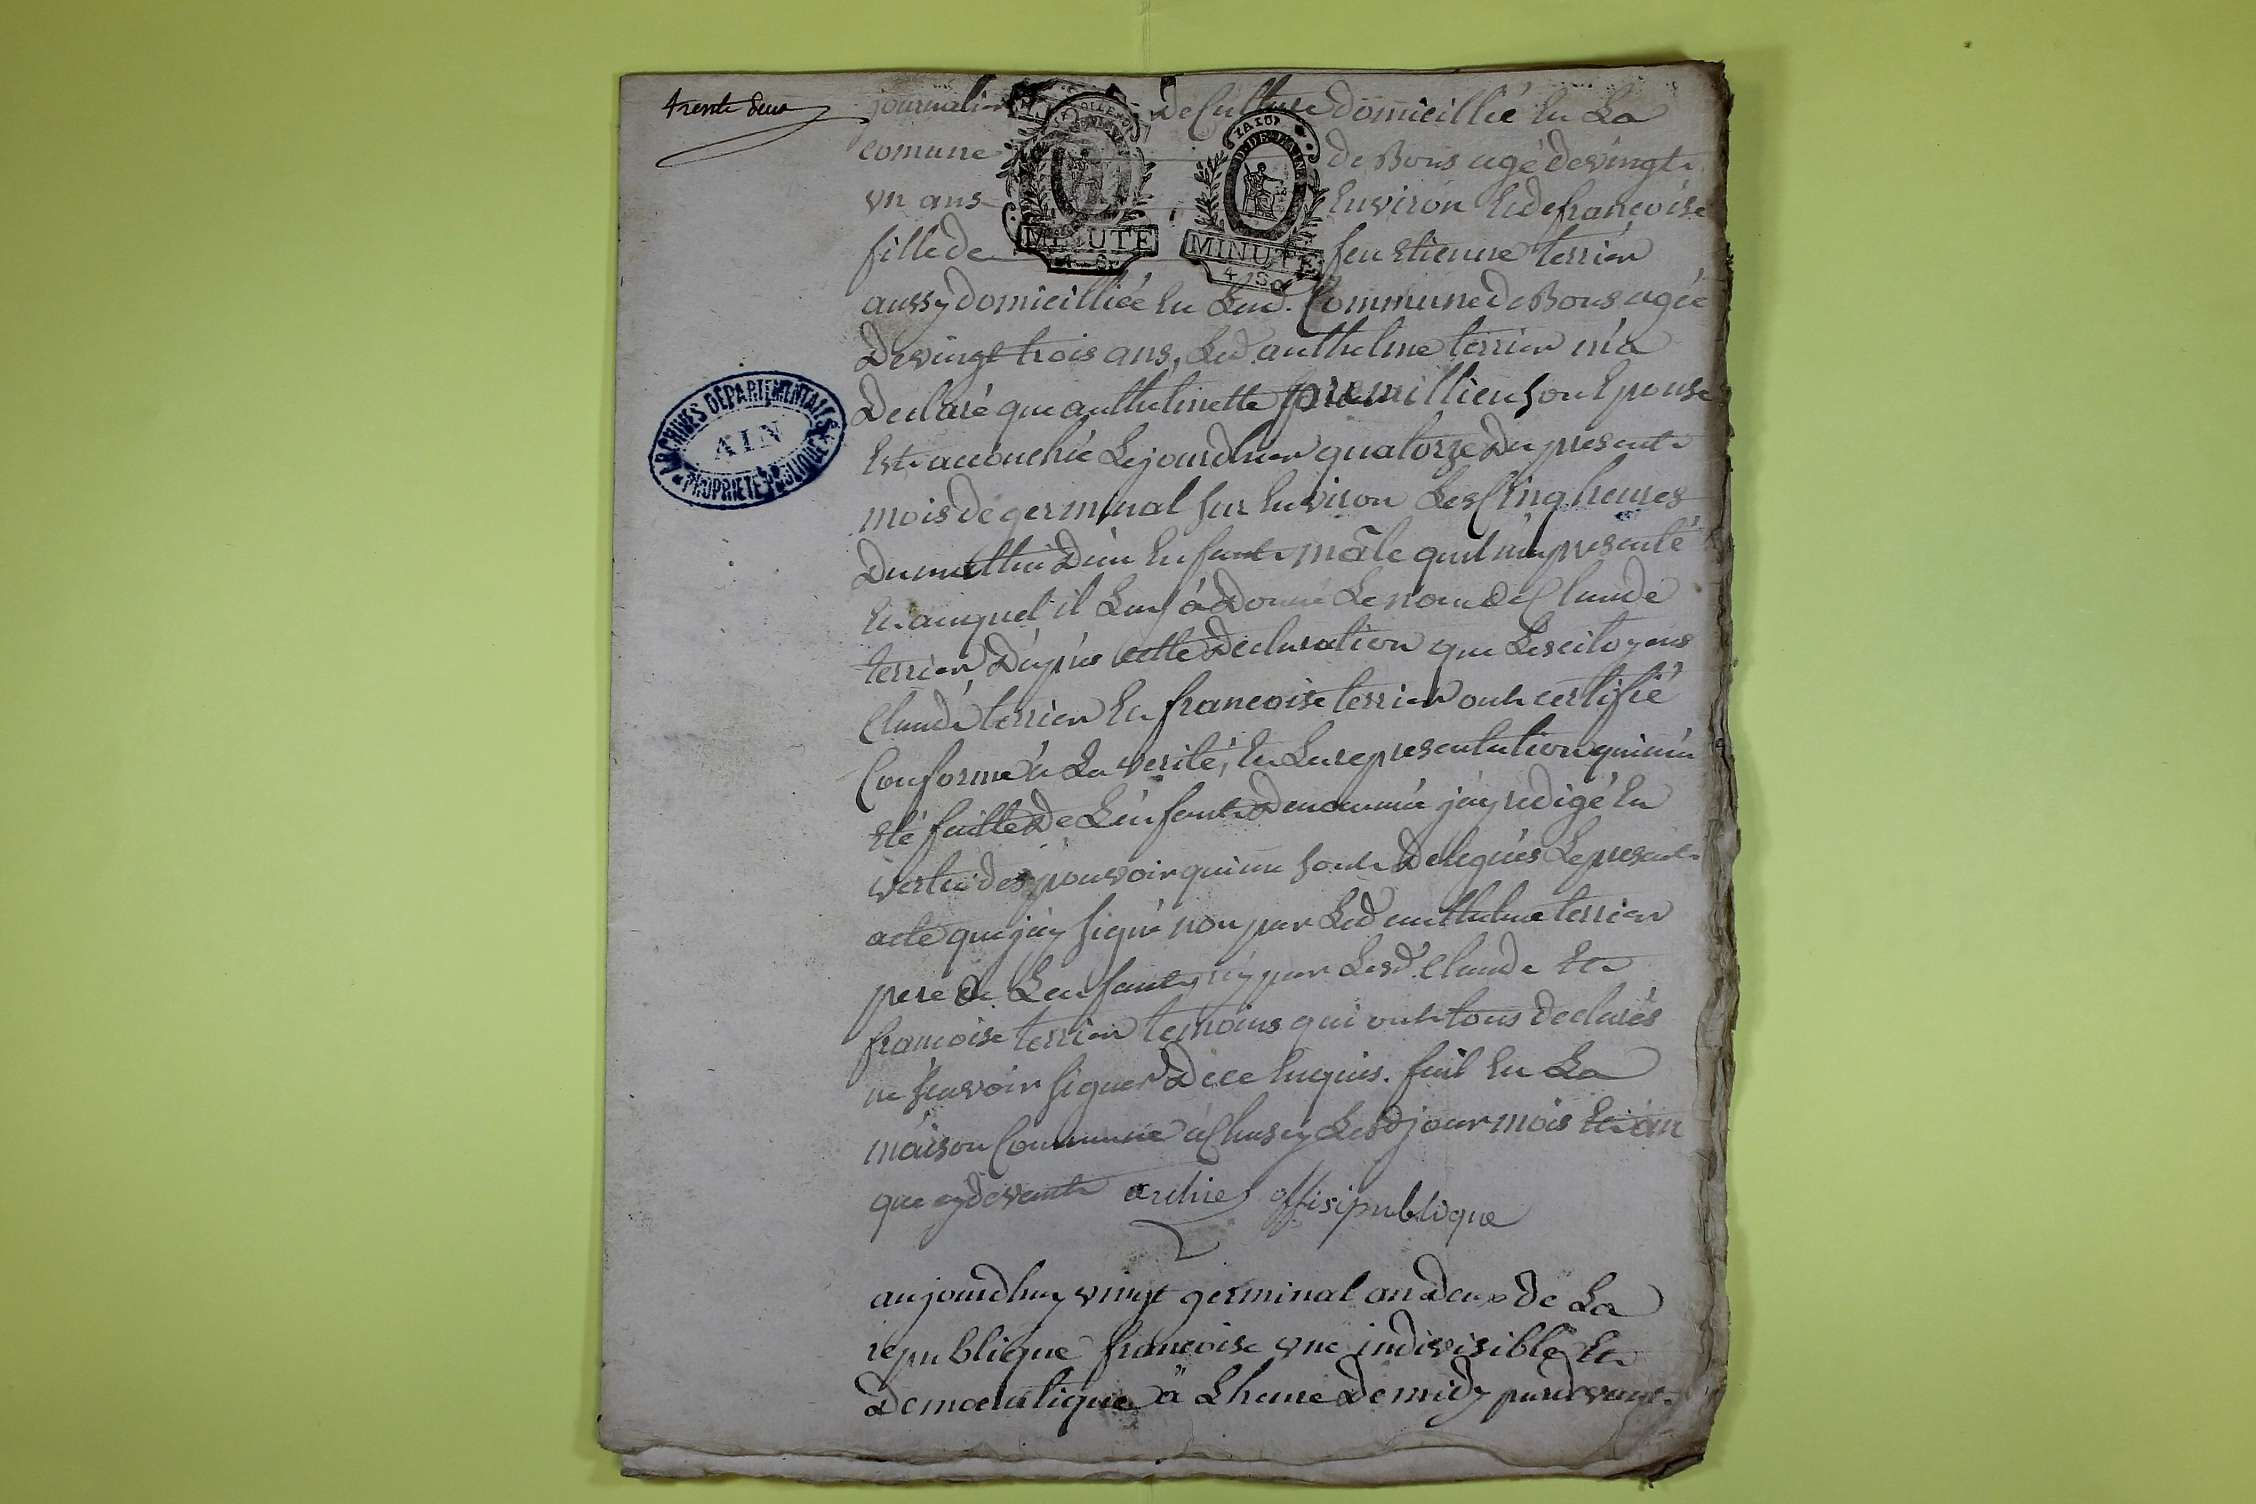 trente deux
journalier de Culture domicillié en La
comune de Bons agé de vingt
un ans environ et de francoise
fille de feu Etienne terrier
MINUTE
MINUTE
4 S
aussy domicilliée en Lad. Commune de Bons agée
de vingt trois ans, Led. anthelme terrier m'a
Declaré que anthelmette premillieu son Epouse
Est accouchée Le jourdhier quatorze du present
mois de germinal sur environ Les Cinq heures
Du mattin D'un Enfant mâle quil m'a presenté
Et auquel il Luy à Donné Le nom de Claude
terrier D'après cette Declaration que Les citoyens
Claude terrier Et francoise terrier ont certifié
Conforme à La verité, Et La representation qui m'a
Eté faitte De L'enfant denommé j'ay redigé En
vertu des pouvoir qui me sont Delegués Le present
acte que j'ay signé non par Led. anthelme terrier
pere de L'enfant ny par Lesd. Claude Et
francoise terrier temoins qui ont tous declarés
ne sçavoir signer De ce Enquis. fait En La
maison Commune à Chasey Lesd jour mois Et an
que cy devant offisi publique
ARCHIVES DÉPARTEMENTALES
AIN
PROPRIETÉ PUBLIQUE
aujourdhuy vingt germinal an Deux de La
republique francoise une indivisible Et
Democratique à Lheure De midy pardevant